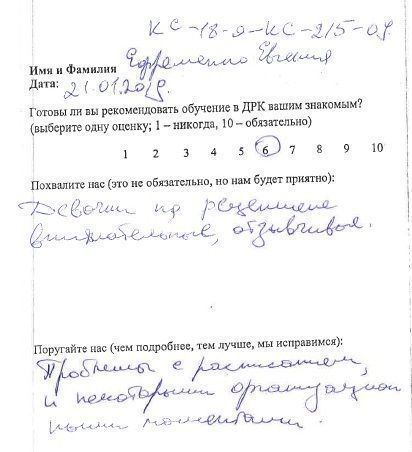 КС-18-9-КС-215-09
Имя и Фамилия Ефременко Евгения
Дата: 21.01.2019.
Готовы ли вы рекомендовать обучение в ДРК вашим знакомым?
(выберите одну оценку; 1 – никогда, 10 – обязательно)
1 2 3 4 5 6 7 8 9 10
Похвалите нас (это не обязательно, но нам будет приятно):
Девочки на рецепшене
внимательные, отзывчивые.
Поругайте нас (чем подробнее, тем лучше, мы исправимся):
Проблемы с расписанием,
и некоторыми организацион
ными моментами.